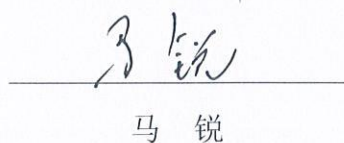 马锐
马 锐